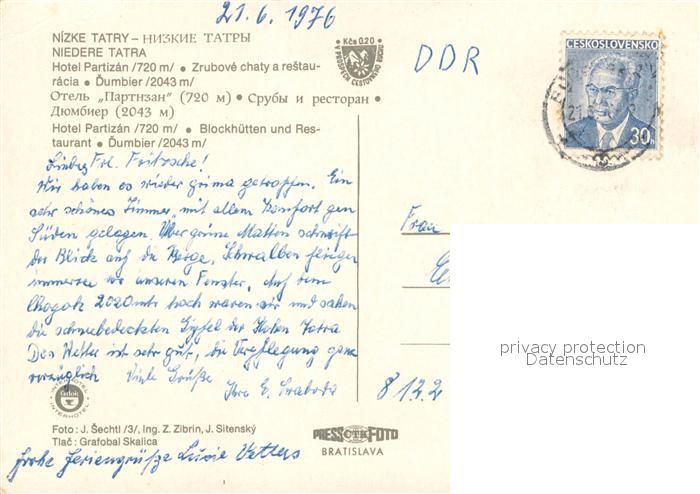 21.6.1976
NÍZKE TATRY – НИЗКИЕ ТАТРЫ
NIEDERE TATRA
Hotel Partizán /720 m/ • Zrubové chaty a reštau-
rácia • Ďumbier /2043 m/
Отель „Партизан" (720 м) • Срубы и ресторан •
Дюмбиер (2043 м)
Hotel Partizán /720 m/ • Blockhütten und Res-
taurant • Ďumbier /2043 m/
Kčs 0.20
V PROSPECH CESTOVNÉHO RUCHU
DDR
ČESKOSLOVENSKO
30h
Liebes Frl. Fritzsche!
Wir haben es wieder prima getroffen. Ein
sehr schönes Zimmer mit allem Komfort gen
Süden gelegen. Über grüne Matten schweift
der Blick auf die Berge, Schwalben fliegen
immerzu vor unseren Fenster. Auf dem
Chopok 2020 mtr hoch waren wir und sahen
die schneebedeckten Gipfel der Hohen Tatra
Das Wetter ist sehr gut, die Verpflegung ganz
vorzüglich Viele Grüße
Ihre E. Swaboda
Frau
8122
privacy protection
Datenschutz
INTERHOTEL
čedok
INTERHOTEL
Foto: J. Šechtl /3/, Ing. Z. Zibrin, J. Sitenský
Tlač: Grafobal Skalica
PRESSFOTO
BRATISLAVA
Frohe Feriengrüße Lucie Vetters